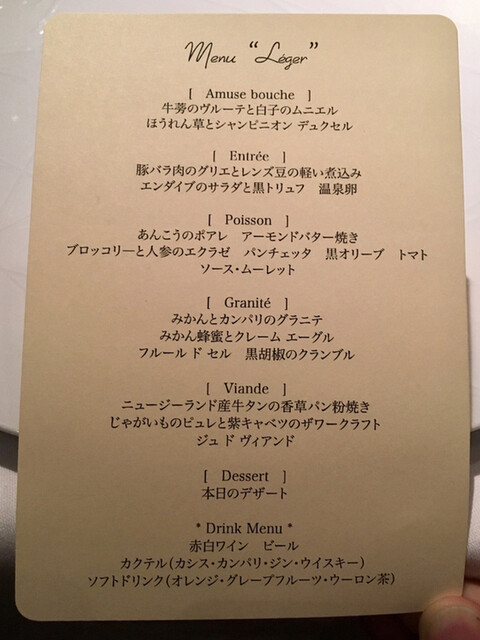 Menu “Léger”
[ Amuse bouche ]
牛蒡のヴルーテと白子のムニエル
ほうれん草とシャンピニオン デュクセル
[ Entrée ]
豚バラ肉のグリエとレンズ豆の軽い煮込み
エンダイブのサラダと黒トリュフ　温泉卵
[ Poisson ]
あんこうのポアレ　アーモンドバター焼き
ブロッコリーと人参のエクラゼ　パンチェッタ　黒オリーブ　トマト
ソース・ムーレット
[ Granité ]
みかんとカンパリのグラニテ
みかん蜂蜜とクレーム エーグル
フルール ド セル　黒胡椒のクランブル
[ Viande ]
ニュージーランド産牛タンの香草パン粉焼き
じゃがいものピュレと紫キャベツのザワークラフト
ジュ ド ヴィアンド
[ Dessert ]
本日のデザート
* Drink Menu *
赤白ワイン　ビール
カクテル(カシス・カンパリ・ジン・ウイスキー)
ソフトドリンク(オレンジ・グレープフルーツ・ウーロン茶)